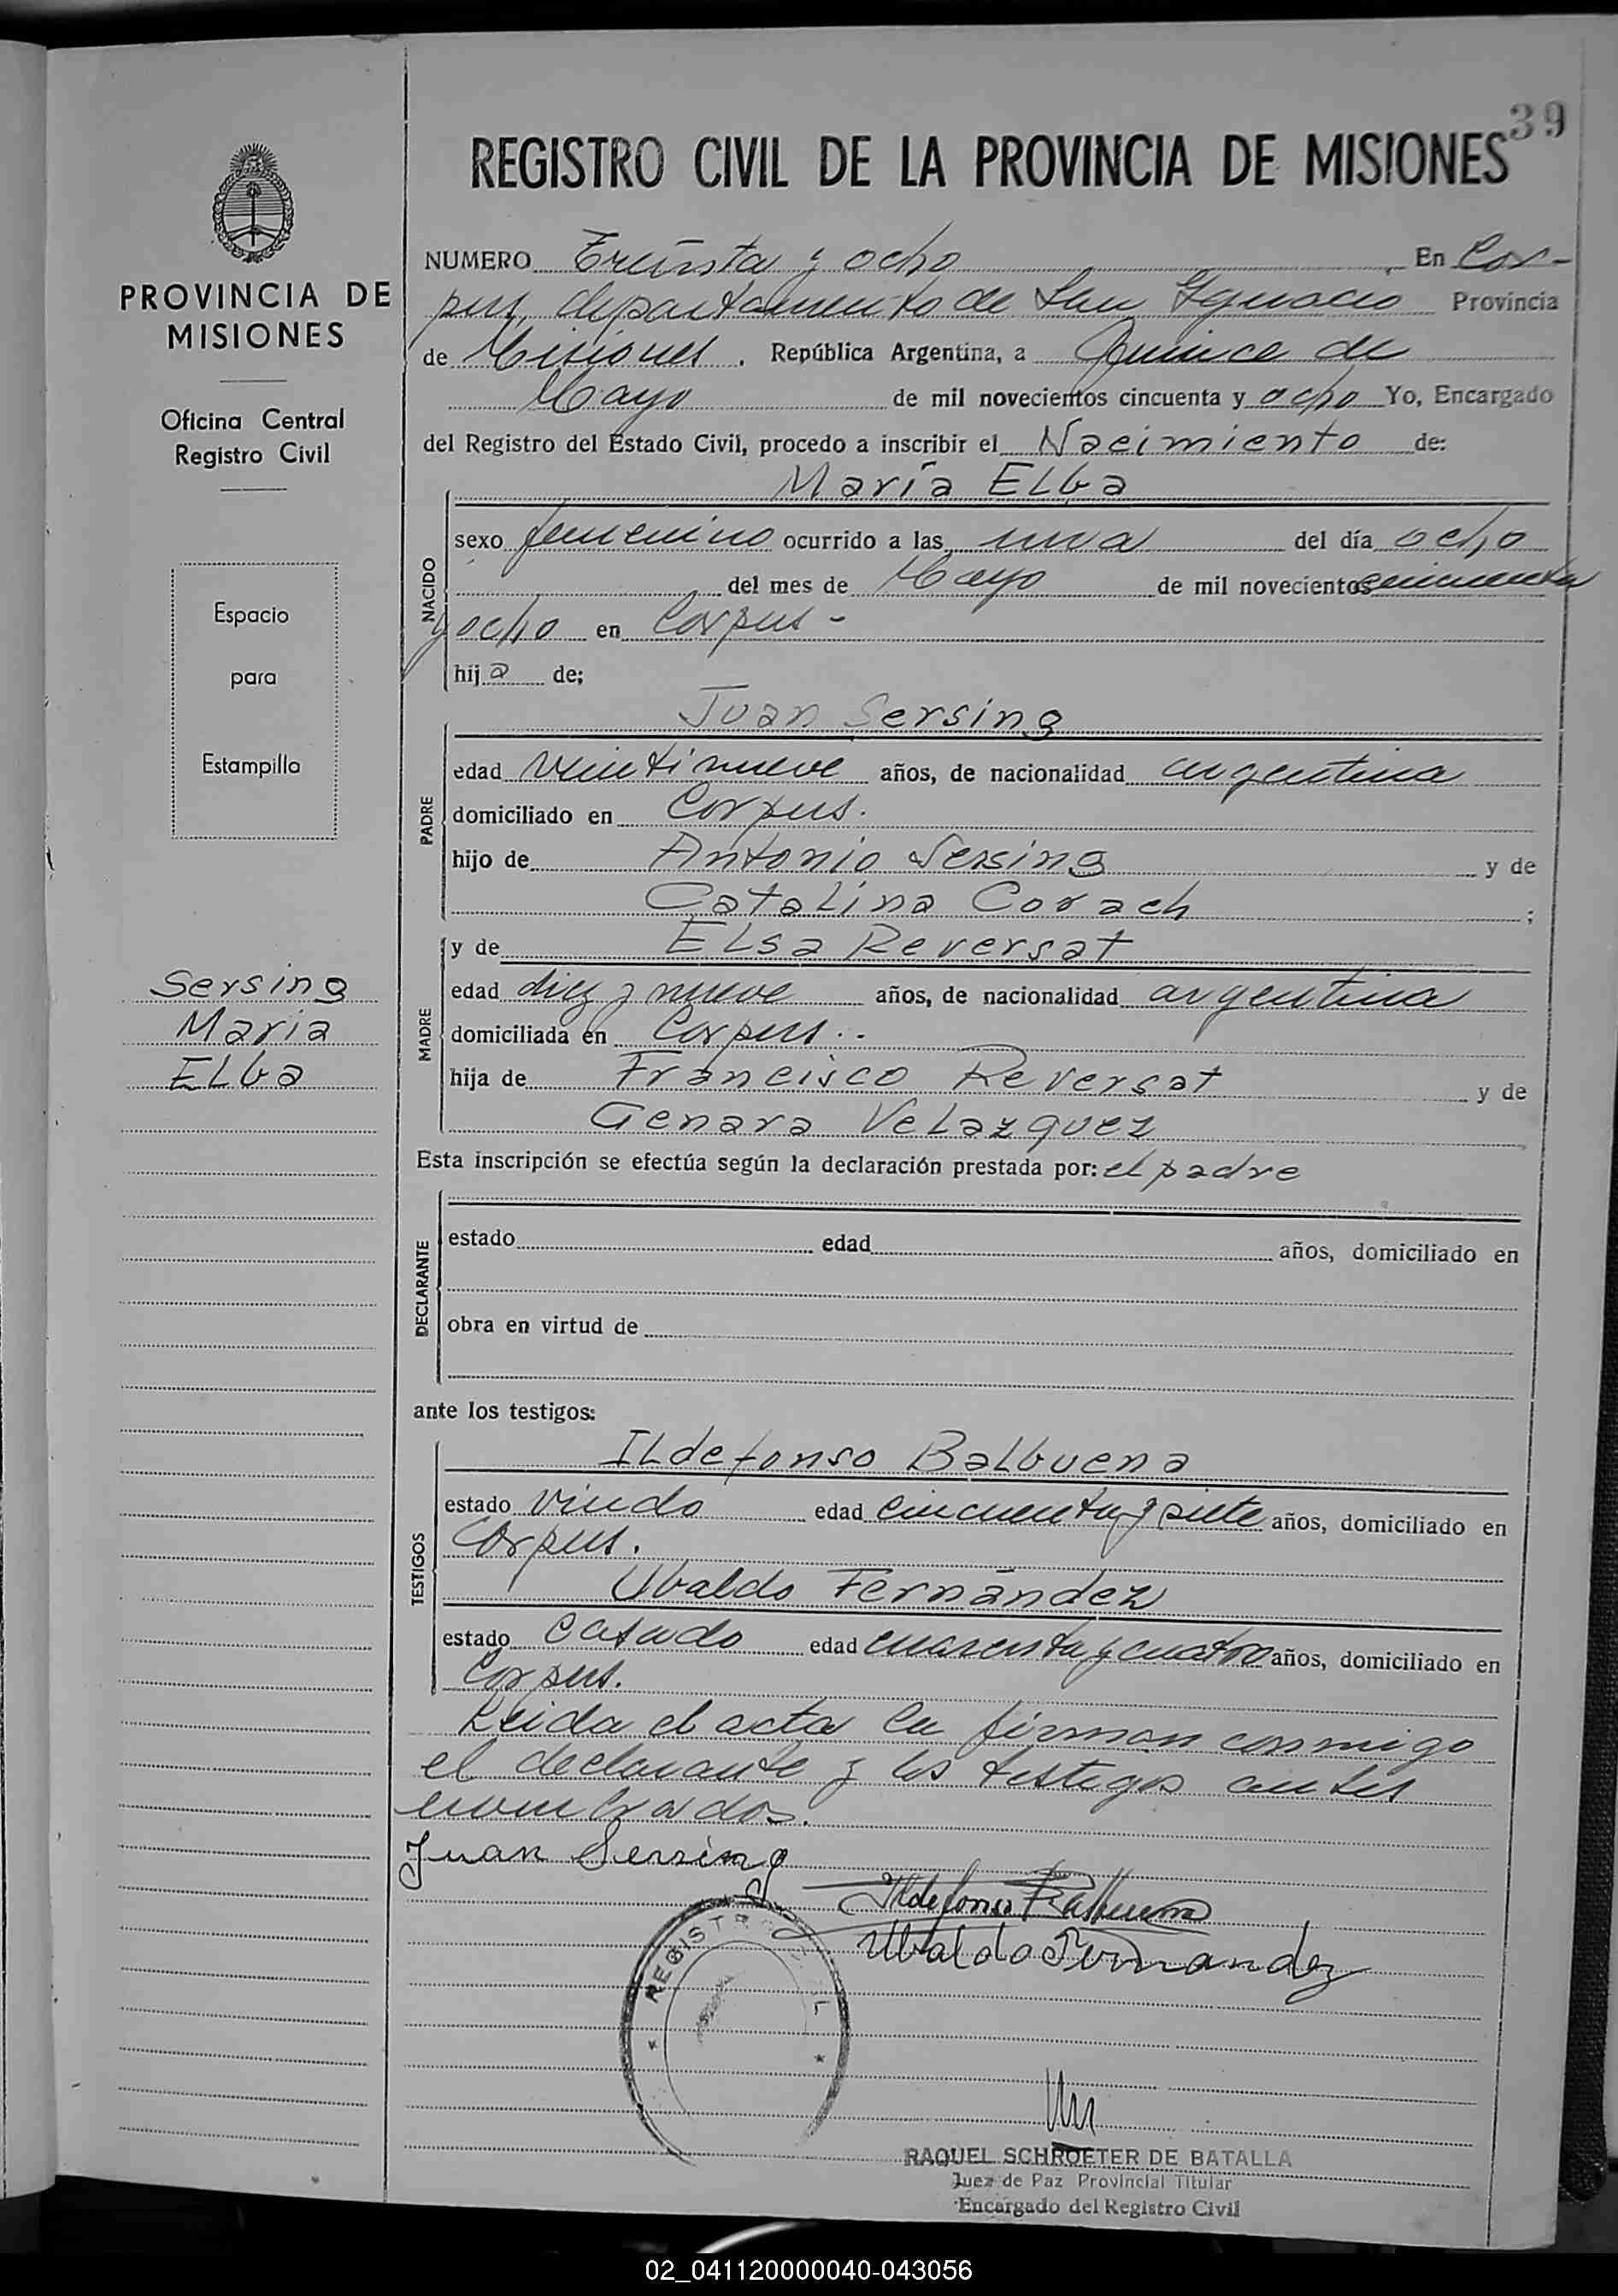 39
REGISTRO CIVIL DE LA PROVINCIA DE MISIONES
PROVINCIA DE
MISIONES
Oficina Central
Registro Civil
Espacio
para
Estampilla
Sersing
Maria
Elba
NUMERO Treinta y ocho En Cor-
pus, departamento de San Ignacio Provincia
de Misiones. República Argentina, a Quince de
Mayo de mil novecientos cincuenta y ocho Yo, Encargado
del Registro del Estado Civil, procedo a inscribir el Nacimiento de:
NACIDO
María Elba
sexo femenino ocurrido a las una del día ocho
del mes de Mayo de mil novecientos cincuenta
y ocho en Corpus-
hija de;
PADRE
Juan Sersing
edad veintinueve años, de nacionalidad argentina
domiciliado en Corpus.
hijo de Antonio Sersing y de
Catalina Corach ;
MADRE
y de Elsa Reversat
edad diez y nueve años, de nacionalidad argentina
domiciliada en Corpus..
hija de Francisco Reversat y de
Genara Velazquez
Esta inscripción se efectúa según la declaración prestada por: el padre
DECLARANTE
estado edad años, domiciliado en
obra en virtud de
ante los testigos:
TESTIGOS
Ildefonso Balbuena
estado viudo edad cincuenta y siete años, domiciliado en
Corpus.
Ubaldo Fernández
estado casado edad cuarenta y cuatro años, domiciliado en
Corpus.
Leida el acta la firman conmigo
el declarante y los testigos antes
nombrados.
Juan Sersing
Ildefonso Balbuena
Ubaldo Fernandez
REGISTRO
RAQUEL SCHROETER DE BATALLA
Juez de Paz Provincial Titular
Encargado del Registro Civil
02_041120000040-043056